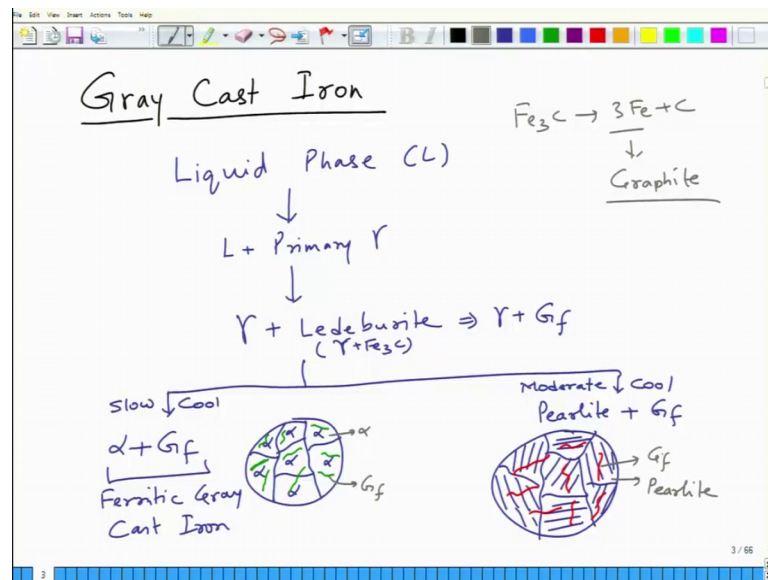 File Edit View Insert Actions Tools Help
B I
Gray Cast Iron
Fe₃C → 3Fe + C
↓
Graphite
Liquid Phase (L)
↓
L + Primary γ
↓
γ + Ledeburite ⇒ γ + Gf
(γ + Fe₃C)
Slow ↓ Cool
α + Gf
Ferritic Gray
Cast Iron
α α α
α α α
α
→ α
→ Gf
Moderate ↓ Cool
Pearlite + Gf
→ Gf
→ Pearlite
3 / 66
3